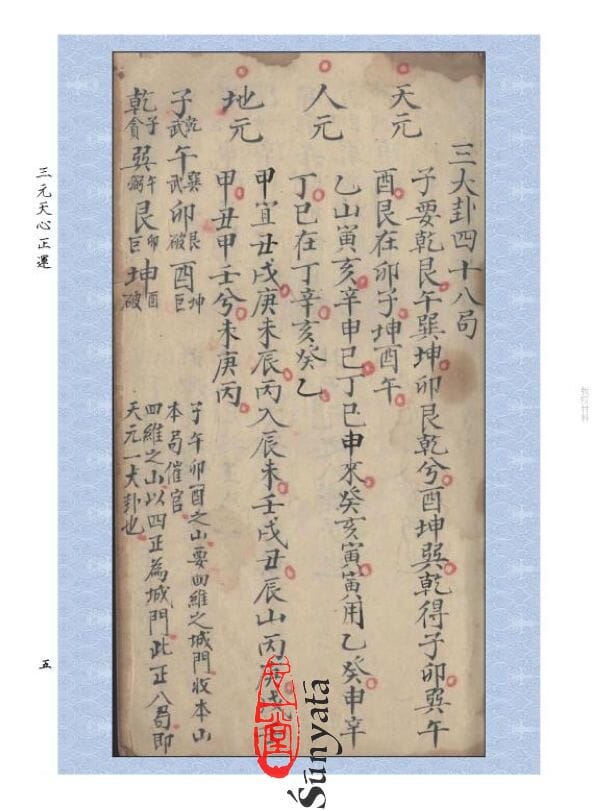 三大卦四十八局
天元
子要乾艮午巽坤卯艮乾兮酉坤巽乾得子卯巽午
酉艮在卯子坤酉午
人元
乙山寅亥辛申巳丁巳申來癸亥寅寅用乙癸申辛
丁巳在丁辛亥癸乙
地元
甲宜丑戌庚未辰丙入辰未壬戌丑辰山丙庚戌
甲丑甲壬兮未庚丙
子乾武午巽武卯艮破酉坤巨
乾子貪巽午弼艮卯巨坤酉破
子午卯酉之山要四維之城門收本山
本局催官
四維之山以四正為城門此正八局即
天元一大卦也
三元天心正運
五
Śūnyatā